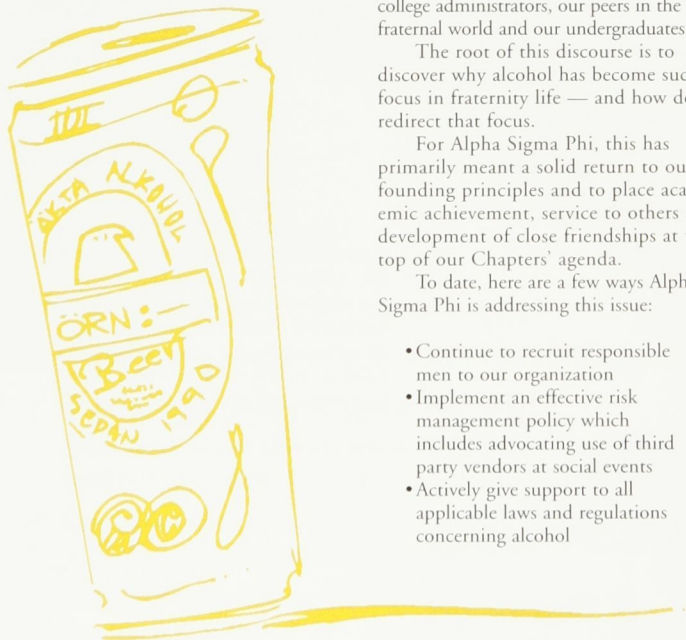 ÄKTA ALKOHOL
ÖRN:-
Beer
SEDAN 1990
college administrators, our peers in the
fraternal world and our undergraduates
The root of this discourse is to
discover why alcohol has become suc
focus in fraternity life — and how d
redirect that focus.
For Alpha Sigma Phi, this has
primarily meant a solid return to ou
founding principles and to place aca
emic achievement, service to others
development of close friendships at
top of our Chapters' agenda.
To date, here are a few ways Alph
Sigma Phi is addressing this issue:
•Continue to recruit responsible
men to our organization
•Implement an effective risk
management policy which
includes advocating use of third
party vendors at social events
•Actively give support to all
applicable laws and regulations
concerning alcohol